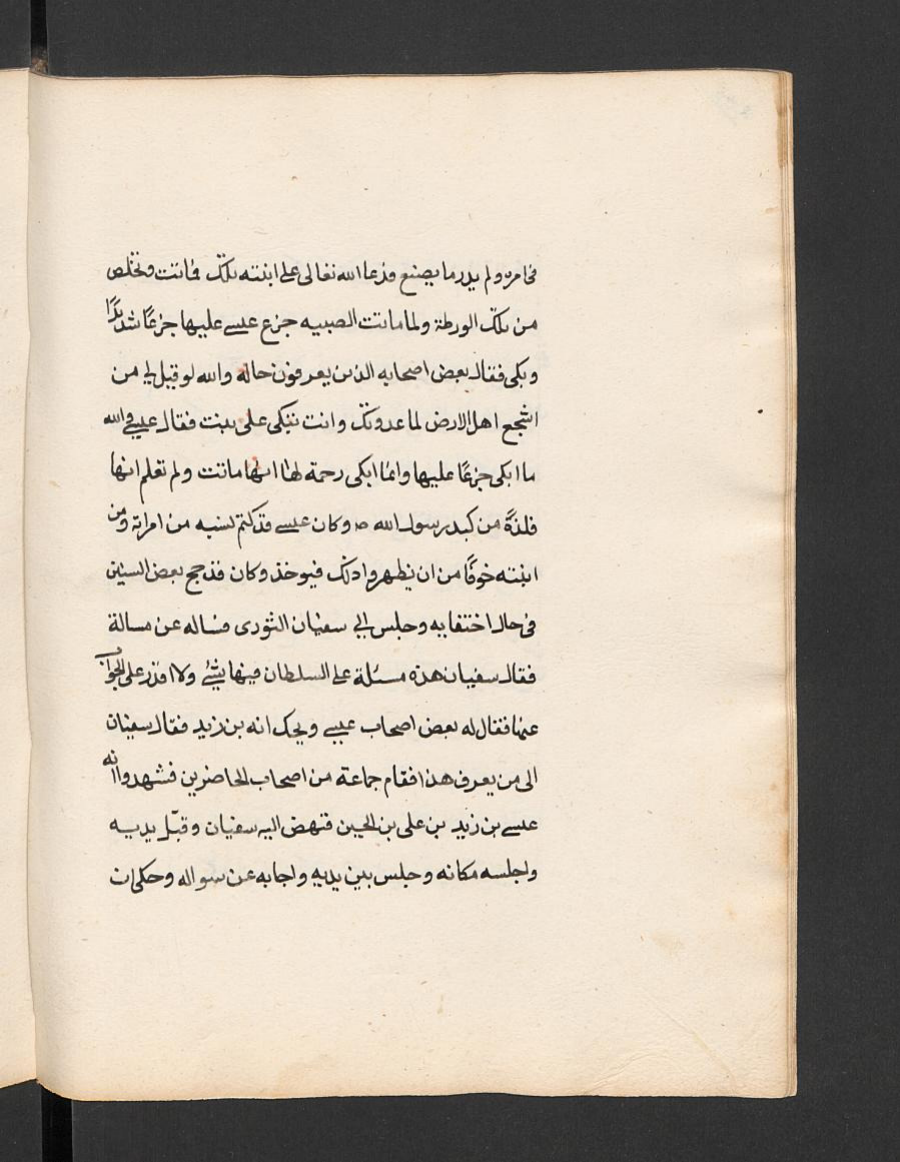 في امره ولم يدر ما يصنع فدعا الله تعالى على ابنته تلك فماتت وتخلص
من تلك الورطة ولما ماتت الصبيه جزع عيسى عليها جزعًا شديدًا
وبكى فقال بعض اصحابه الذين يعرفون حاله والله لو قيل لي من
اشجع اهل الارض لما عدوتك وانت تبكى على بنت فقال عيسى والله
ما ابكى جزعًا عليها وانما ابكى رحمة لها انها ماتت ولم تعلم انها
فلذة من كبد رسول الله ص وكان عيسى قد كتم نسبه من امراته ومن
ابنته خوفًا من ان يظهروا ذلك فيوخذ وكان قد حج بعض السنين
في حال اختفايه وجلس الى سفيان الثورى فساله عن مسالة
فقال سفيان هذه مسئلة على السلطان فيها شئ ولا اقدر على الجواب
عنها فقال له بعض اصحاب عيسى ويحك انه بن زيد فقال سفيان
الى من يعرف هذا فقام جماعة من اصحاب الحاضرين فشهدوا انه
عيسى بن زيد بن على بن الحسين فنهض اليه سفيان وقبّل يديه
واجلسه مكانه وجلس بين يديه واجابه عن سواله وحكى ان